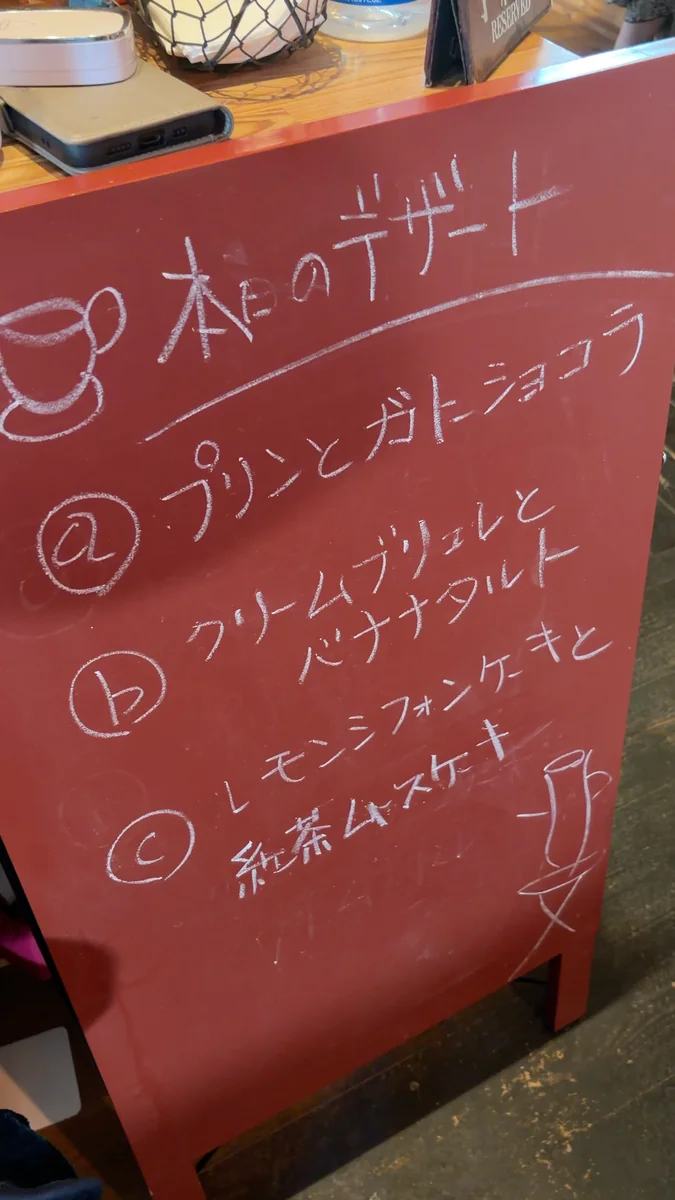 RESERVED
本日のデザート
ⓐ プリンとガトーショコラ
ⓑ クリームブリュレと
バナナタルト
ⓒ レモンシフォンケーキと
紅茶ムースケーキ